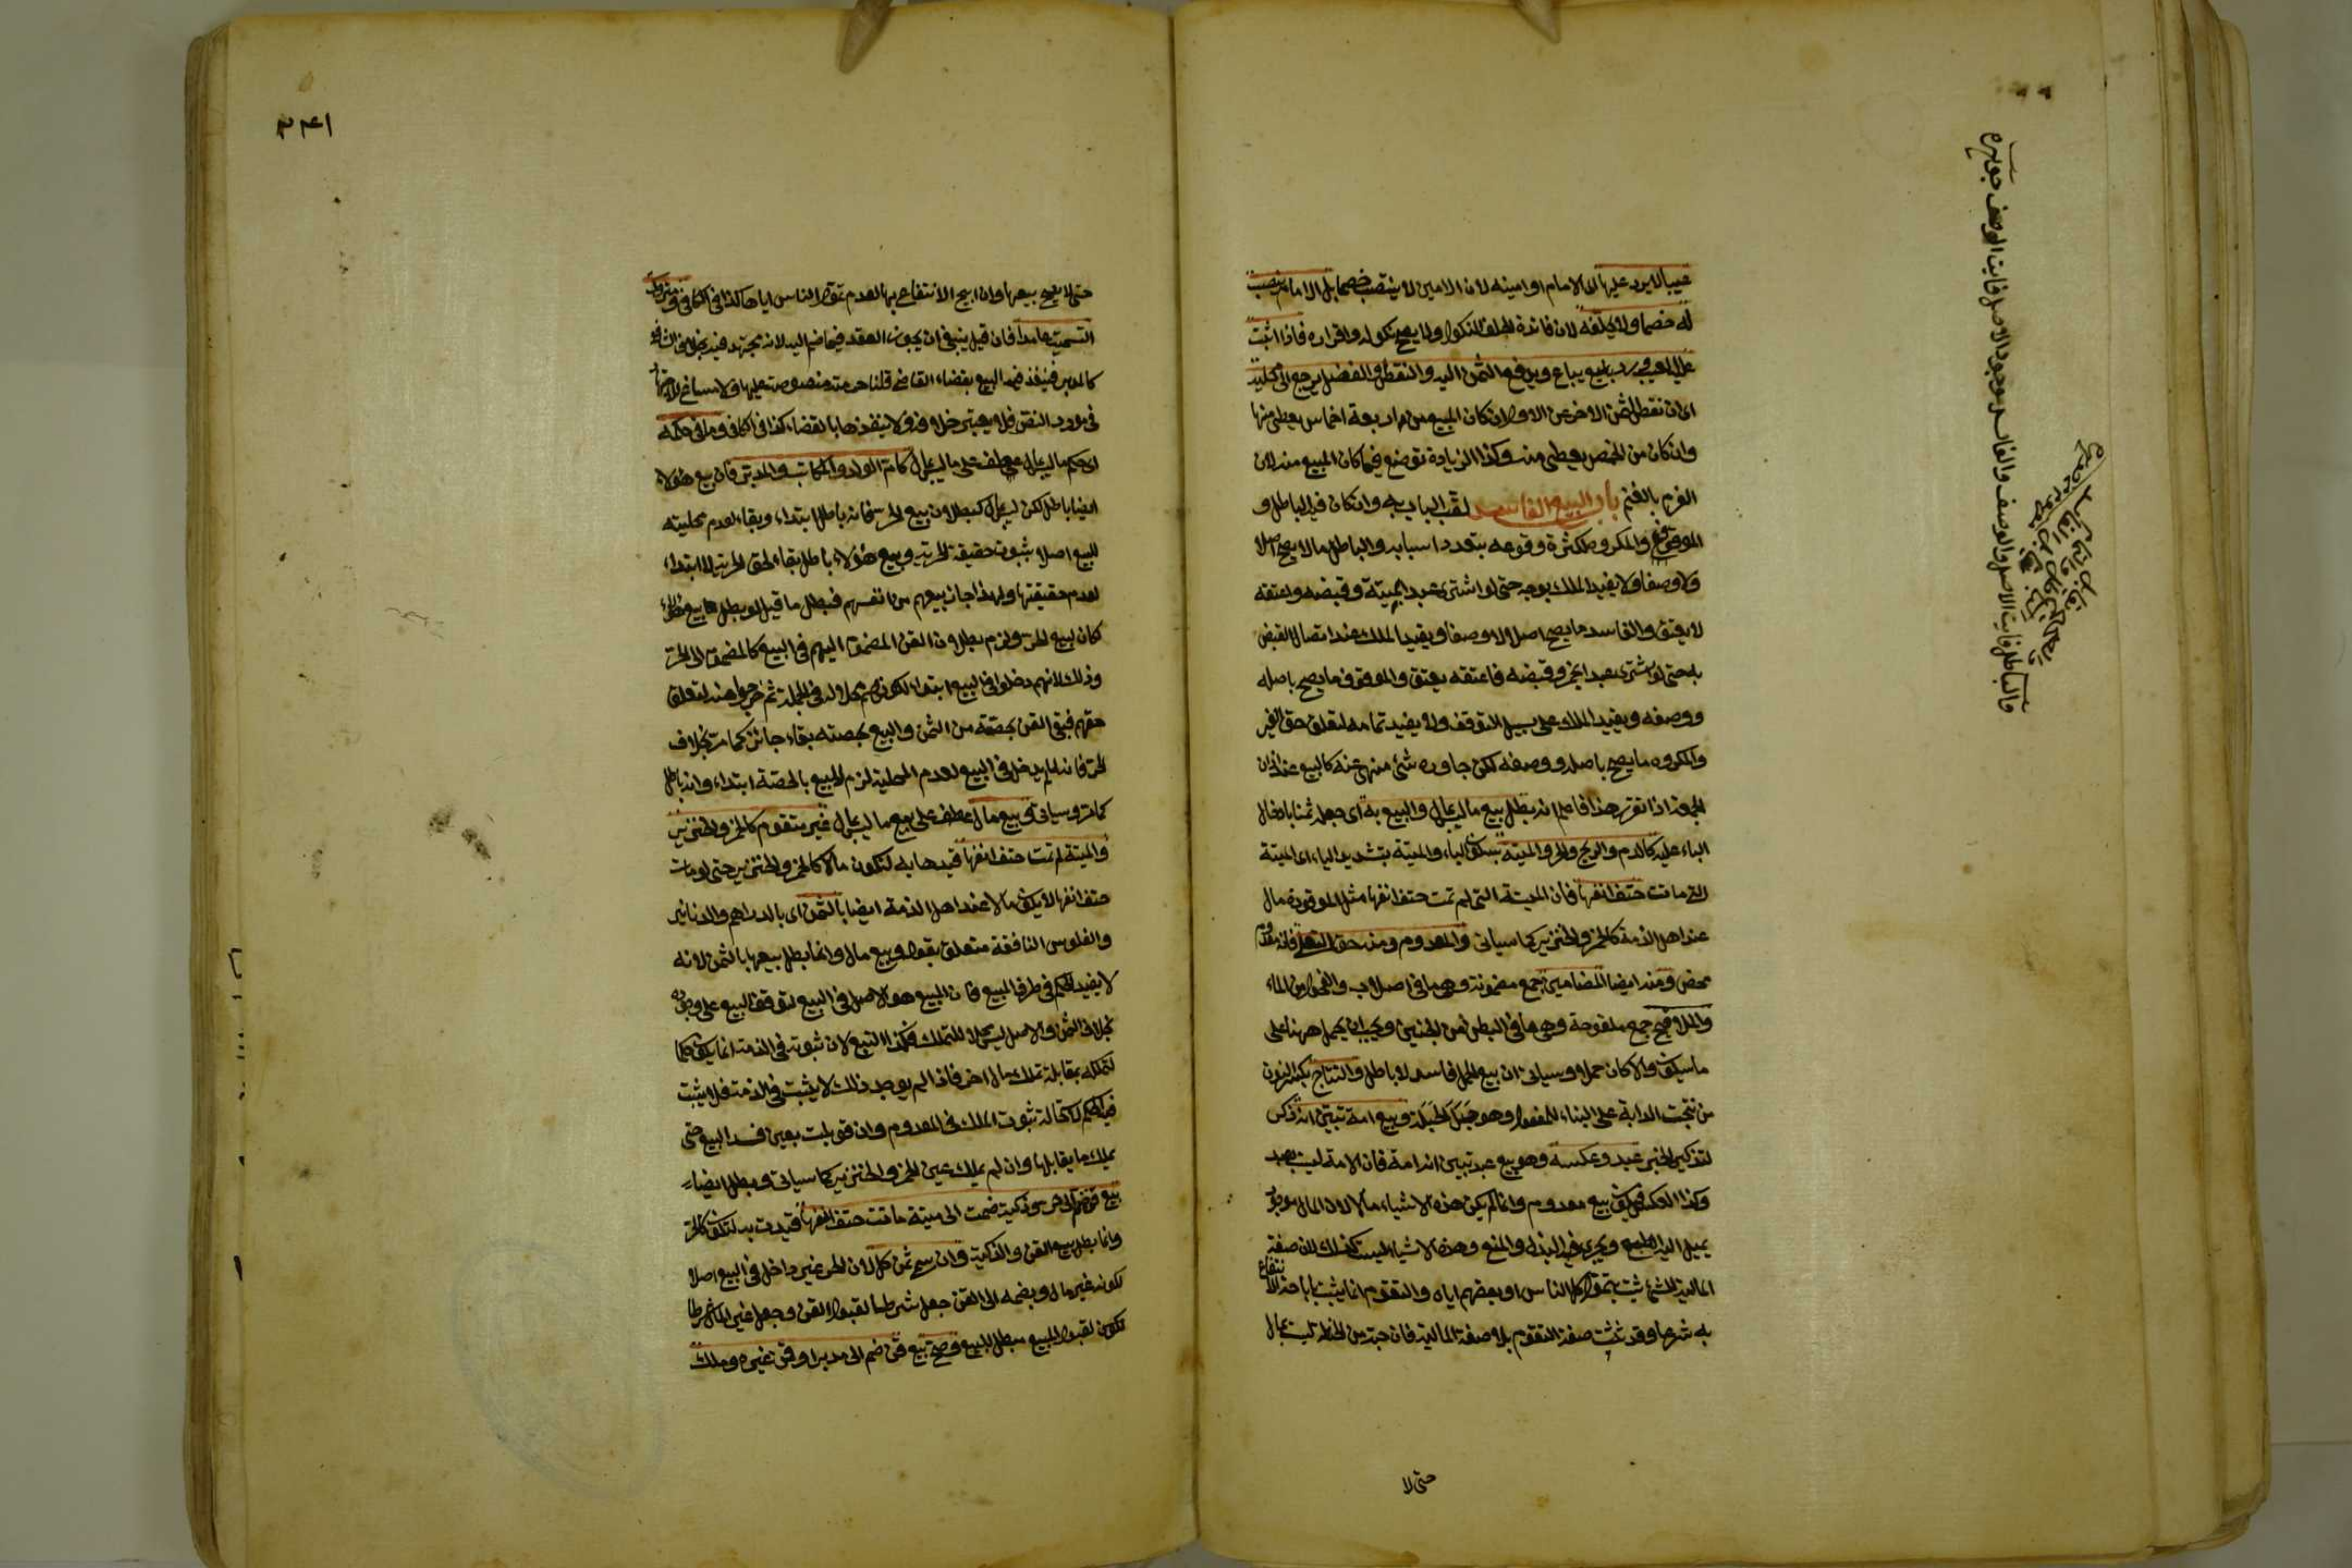 عيبا لا يرد عليها الى الامام او امينه لان الامين لا ينتصب خصما بل الامام ينصب
له خصما ولا يحلفه لان فائدة الحلف النكول ولا يصح نكوله واقراره فاذا اثبت
يباع ويدفع الثمن اليه والنقص والفضل يرجع الى محله
اى ان نقص الثمن الاخر عن الاول ان كان المبيع من اربعة اخماس يعطى منها
وان كان من الخمس يعطى منه وكذا الزيادة توضع فيما كان المبيع منه لان
الغرم بالغنم باب البيع الفاسد لقب الباب به وان كان فيه الباطل و
الموقوف والمكروه لكثرة وقوعه بتعدد اسبابه والباطل ما لا يصح اصلا
ولا وصفا ولا يفيد الملك بوجه حتى لو اشترى عبدا بميتة وقبضه واعتقه
لا يعتق والفاسد ما يصح اصلا لا وصفا ويفيد الملك عند اتصال القبض
به حتى لو اشترى عبدا بخمر وقبضه فاعتقه يعتق والموقوف ما يصح باصله
ووصفه ويفيد الملك على سبيل التوقف ولا يفيد تمامه لتعلق حق الغير
والمكروه ما يصح باصله ووصفه لكن جاوره شئ منهى عنه كالبيع عند اذان
الجمعة اذا تقرر هذا فاعلم انه بطل بيع ما ليس بمال والبيع به اى جعله ثمنا بادخال
الباء عليه كالدم والريح والحر والميتة بسكون الياء والميتة بتشديد الياء اى الميتة
التى ماتت حتف انفها فان الميتة التى لم تمت حتف انفها مثل الموقوذة مال
عند اهل الذمة كالخمر والخنزير كما سياتى والمعدوم ومنه حق التعلى فانه معدوم
محض ومنه ايضا المضامين جمع مضمونة وهى ما فى اصلاب الفحول من الماء
والملاقيح جمع ملقوحة وهى ما فى البطن من الجنين ويجب ان يحمل ههنا على
ما سيكون والا كان حملا وسياتى ان بيع الحمل فاسد لا باطل والنتاج بكسر النون
من نتجت الدابة على البناء للمفعول وهو حبل الحبلة وبيع امة تبين انه ذكر
لتذكير الخبر عبد وعكسه وهو بيع عبد تبين انه امة فان الامة ليست بعبد
وكذا العكس فيكون بيع معدوم وانما لم يكن هذه الاشياء مالا لان المال موجود
يميل اليه الطبع ويجرى فيه البذل والمنع وهذه الاشياء ليست كذلك لان صفة
المالية للشئ تثبت بتمول كل الناس او بعضهم اياه والتقوم انما يثبت باباحة الانتفاع
به شرعا وقد تثبت صفة التقوم بلا صفة المالية فان حبة من الحنطة ليست بمال
حتى لا
والباطل فايت الاصل والوصف والفاسد موجود الاصل فايت الوصف جوهره
٣٤١
حتى لا يصح بيعها وان ابيح الانتفاع بها لعدم تمول الناس اياها كذا فى الكافى ومتروك
التسمية عامدا فان قيل ينبغى ان يجوز العقد فيما ضم اليه لانه مجتهد فيه بخلاف الشافعى
كالمدبر فينفذ فيه البيع بقضاء القاضى قلنا حرمته منصوصة عليها ولا مساغ للاجتهاد
فى مورد النص فلا يعتبر خلافه ولا ينفذها بالقضاء كذا فى الكافى وما فى حكمه
اى حكم ما ليس بمال عطف على ما ليس بمال كام الولد والمكاتب والمدبر فان بيع هؤلاء
ايضا باطل لكن ليس كبطلان بيع الحر فانه باطل ابتداء وبقاء لعدم محليته
للبيع اصلا بثبوت حقيقة الحرية وبيع هؤلاء باطل بقاء لحق الحرية لا ابتداء
لعدم حقيقتها ولهذا جاز بيعهم من انفسهم فبطل ما قيل لو بطل بيع هؤلاء
كان كبيع الحر ولزم بطلان القن المضموم اليهم فى البيع كالمضموم الى الحر
وذلك لانهم دخلوا فى البيع ابتداء لكونهم محلا له فى الجملة ثم خرجوا منه لتعلق
حقهم فبقى القن بحصته من الثمن والبيع بحصته بقاء جائز كما مر بخلاف
الحر فانه لما لم يدخل فى البيع لعدم المحلية لزم البيع بالحصة ابتداء وانه باطل
كما مر وسياتى وبيع مال عطف على بيع ما ليس بمال غير متقوم كالخمر والخنزير
والميتة لم تمت حتف انفها قيدها به لتكون مالا كالخمر والخنزير حتى لو ماتت
حتف انفها لا يكون مالا عند اهل الذمة ايضا بالثمن اى بالدراهم والدنانير
والفلوس النافقة متعلق بقوله وبيع مال وانما بطل بيعها بالثمن لانه
لا يفيد الحكم فى طرف المبيع فان المبيع هو الاصل فى البيع لتوقف البيع على وجوده
بخلاف الثمن والاصل ليس محلا للتملك فكذا التبع لان ثبوته فى الذمة انما يكون حكما
لتملكه بمقابلة تملك مال اخر فاذا لم يوجد ذلك لا يثبت فى الذمة فلا يثبت
فيه الحكم لاستحالة ثبوت الملك فى المعدوم وان قوبلت بعين فسد البيع حتى
يملك ما يقابلها وان لم يملك عين الخمر والخنزير كما سياتى وبطل ايضا
بيع قن ضم الى حر وذكية ضمت الى ميتة ماتت حتف انفها قيدت به لتكون كالحر
وانما بطل بيع القن والذكية وان سمى ثمن كل لان الحر غير داخل فى البيع اصلا
لكونه غير مال وبضمه الى القن جعل شرطا لقبول القن وجعل غير المال شرطا
لقبول المبيع مبطل للبيع وصح بيع قن ضم الى مدبر او قن غيره وملك